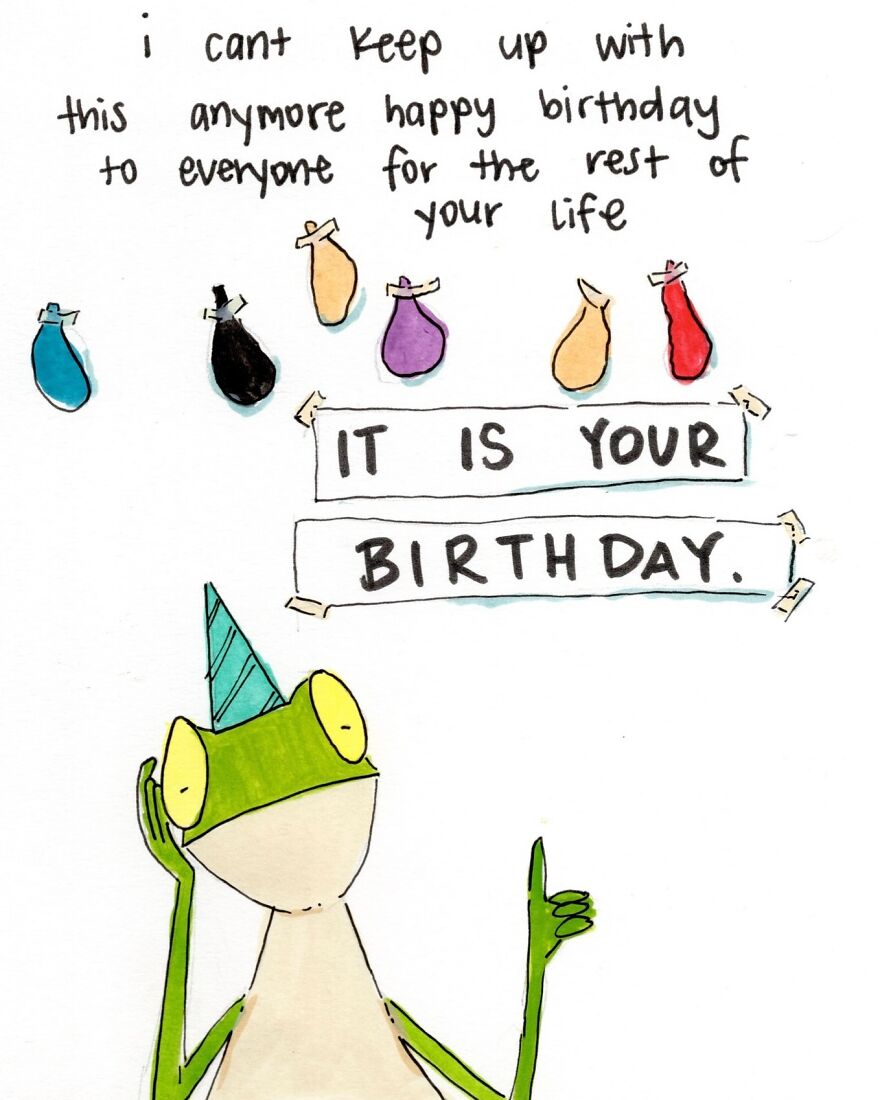 i cant keep up with
this anymore happy birthday
to everyone for the rest of
your life
IT IS YOUR
BIRTHDAY.